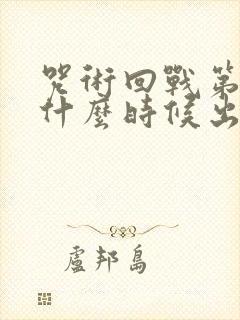 咒術回戰第
什麼時候出
盧邦島